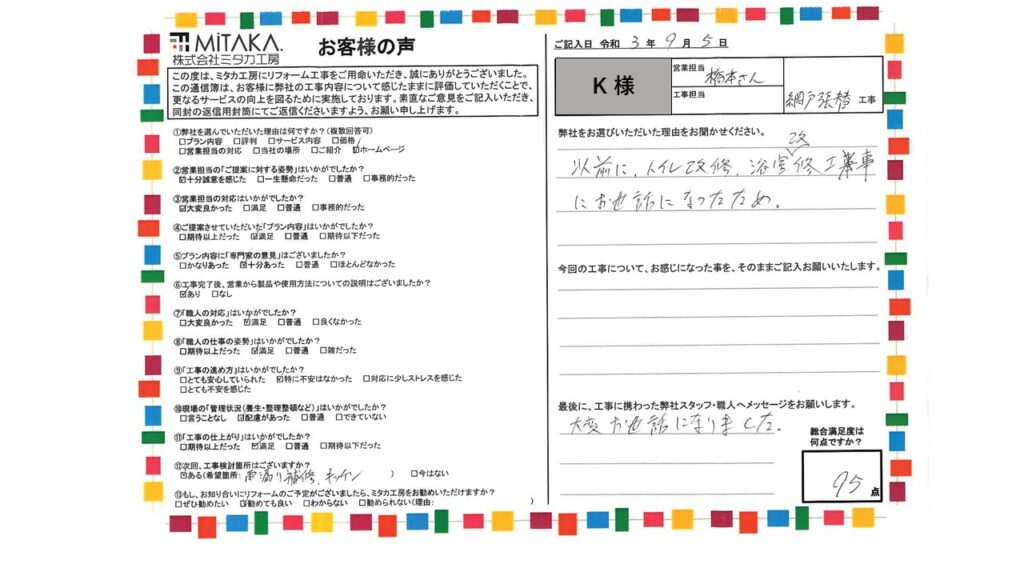 MiTAKA.
株式会社ミタカ工房
お客様の声
この度は、ミタカ工房にリフォーム工事をご用命いただき、誠にありがとうございました。
この通信簿は、お客様に弊社の工事内容について感じたままに評価していただくことで、
更なるサービスの向上を図るために実施しております。素直なご意見をご記入いただき、
同封の返信用封筒にてご返信くださいますよう、お願い申し上げます。
①弊社を選んでいただいた理由は何ですか?(複数回答可)
□プラン内容 □評判 □サービス内容 □価格
□営業担当の対応 □当社の場所 □ご紹介 ☑ホームページ
②営業担当の「ご提案に対する姿勢」はいかがでしたか?
☑十分誠意を感じた □一生懸命だった □普通 □事務的だった
③営業担当の対応はいかがでしたか?
☑大変良かった □満足 □普通 □事務的だった
④ご提案させていただいた「プラン内容」はいかがでしたか?
□期待以上だった ☑満足 □普通 □期待以下だった
⑤プラン内容に「専門家の意見」はございましたか?
□かなりあった ☑十分あった □普通 □ほとんどなかった
⑥工事完了後、営業から製品や使用方法についての説明はございましたか?
☑あり □なし
⑦「職人の対応」はいかがでしたか?
□大変良かった ☑満足 □普通 □良くなかった
⑧「職人の仕事の姿勢」はいかがでしたか?
□期待以上だった ☑満足 □普通 □雑だった
⑨「工事の進め方」はいかがでしたか?
□とても安心していられた ☑特に不安はなかった □対応に少しストレスを感じた
□とても不安を感じた
⑩現場の「管理状況(養生・整理整頓など)」はいかがでしたか?
□言うことなし ☑配慮があった □普通 □できていない
⑪「工事の仕上がり」はいかがでしたか?
□期待以上だった ☑満足 □普通 □期待以下だった
⑫次回、工事検討箇所はございますか?
☑ある(希望箇所: 雨漏り補修、 ) □今はない
⑬もし、お知り合いにリフォームのご予定がございましたら、ミタカ工房をお勧めいただけますか?
□ぜひ勧めたい ☑勧めても良い □わからない □勧められない(理由: )
ご記入日 令和 3 年 9 月 5 日
K 様
営業担当 橋本さん
工事担当
網戸張替 工事
弊社をお選びいただいた理由をお聞かせください。
以前に、トイレ改修、浴室改修工事
にお世話になったため。
今回の工事について、お感じになった事を、そのままご記入お願いいたします。
最後に、工事に携わった弊社スタッフ・職人へメッセージをお願いします。
大変お世話になりました。
総合満足度は
何点ですか?
95 点